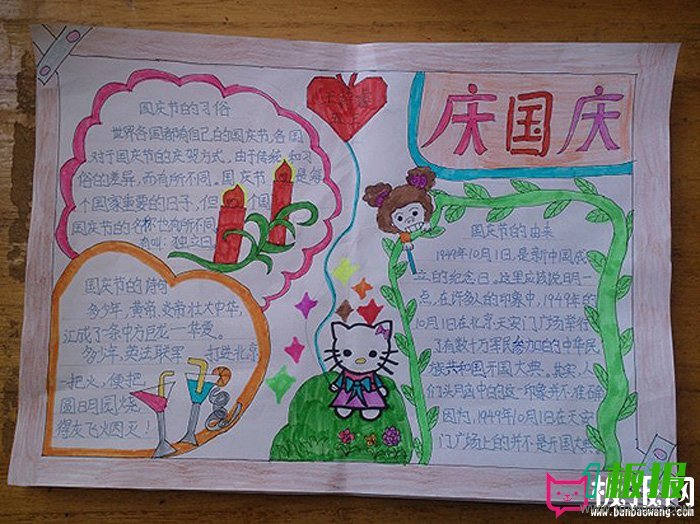 庆国庆
国庆节的习俗
世界各国都有自己的国庆节,各国
对于国庆节的庆贺方式,由于传统和习
俗的差异,而有所不同。国庆节是每
个国家重要的日子,但个国
国庆节的名称也有所不同
有叫:独立日
国庆节的诗句
多少年,黄帝、炎帝壮大中华,
汇成了一条中方巨龙一华夏。
多少年,英法联军打进北京
一把火,使把
圆明园烧
得灰飞烟灭!
国庆节的由来
1949年10月1日,是新中国成
立的纪念日。这里应该说明一
点,在许多人的印象中,1949年的
10月1日在北京天安门广场举行
了有数十万军民参加的中华民
族共和国开国大典。其实,人
们头脑中的这一印象并不准确
因为,1949年10月1日在天安
门广场上的并不是开国大典。
板报
板报网
www.banbaowang.com